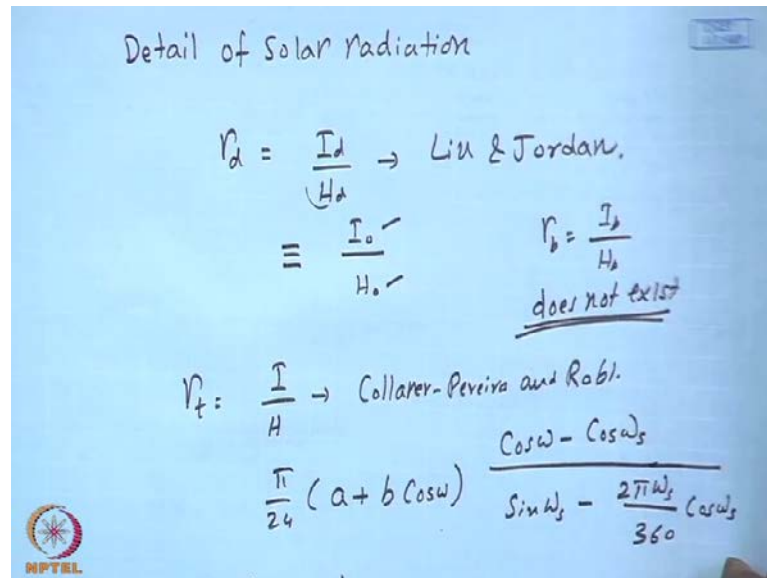 Detail of Solar radiation
r_d = I_d / H_d → Liu & Jordan.
≡ I_o / H_o
r_b = I_b / H_b
does not exist
r_t = I / H → Collarer-Pereira and Rabl.
π/24 (a + b Cosω) (Cosω - Cosω_s) / (Sinω_s - (2πω_s/360) Cosω_s)
NPTEL